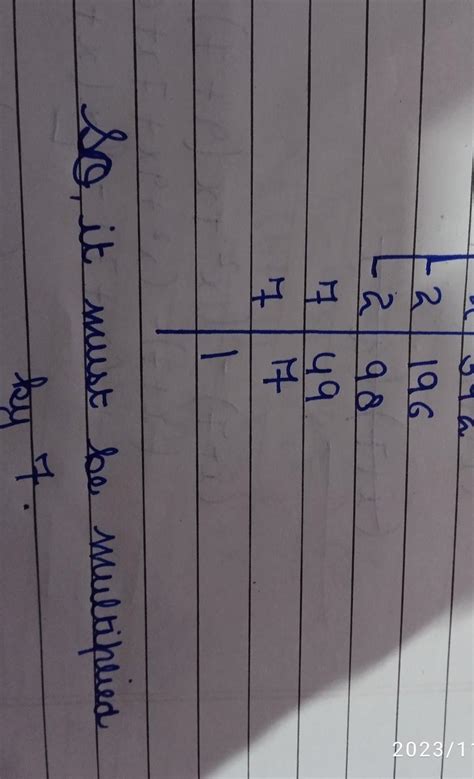 2 392
2 196
2 98
7 49
7 7
1
So, it must be multiplied
by 7.
2023/11